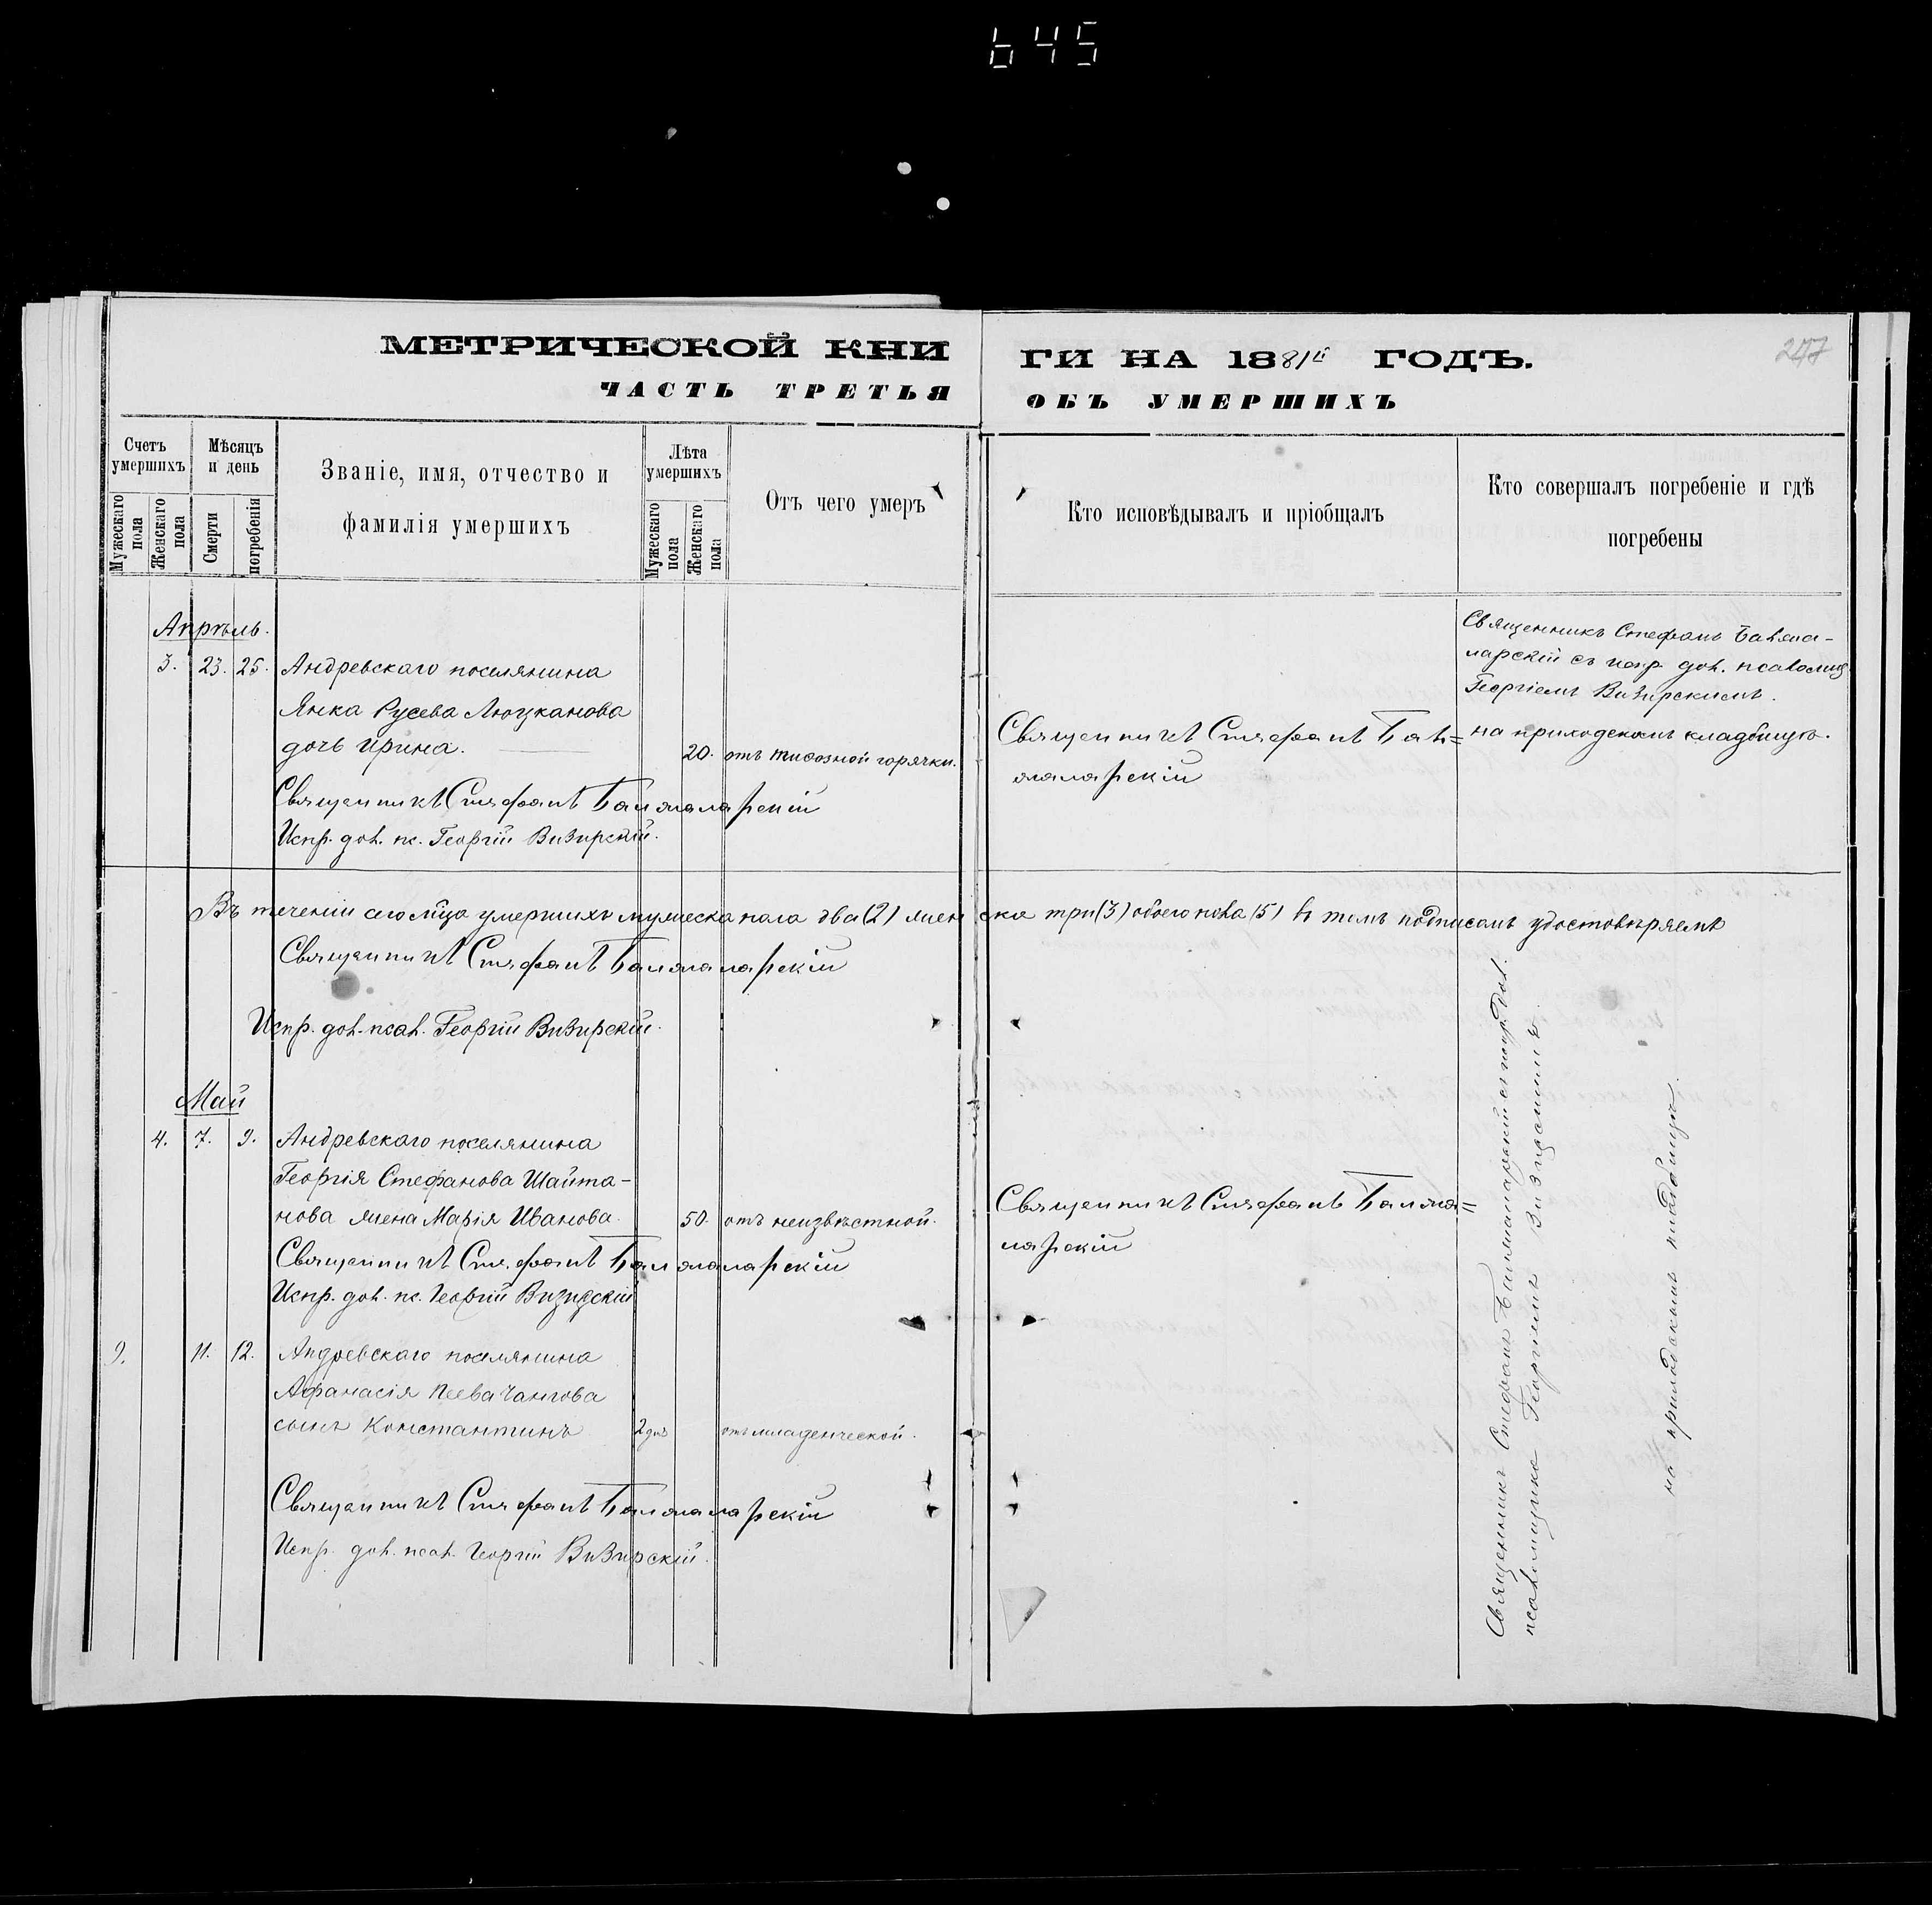 645
МЕТРИЧЕСКОЙ КНИ
ГИ НА 1881й ГОДЪ.
247
ЧАСТЬ ТРЕТЬЯ
ОБЪ УМЕРШИХЪ
Счетъ умершихъ
Мужескаго пола
Женскаго пола
Мѣсяцъ и день
Смерти
погребенія
Званіе, имя, отчество и
фамилія умершихъ
Лѣта умершихъ
Мужескаго пола
Женскаго пола
Отъ чего умеръ
Кто исповѣдывалъ и пріобщалъ
Кто совершалъ погребеніе и гдѣ
погребены
Апрѣль.
3. 23. 25. Андревскаго поселянина
Янка Русева Люцканова
дочь Ирина. 20. отъ тифозной горячки.
Священникъ Стефанъ Бал=
маларскій
Священникъ Стефанъ Балма-
ларскій съ испр. дол. псаломщ
Георгіемъ Визирскимъ.
на приходскомъ кладбищѣ.
Священникъ Стефанъ Балмаларскій
Испр. дол. пс. Георгій Визирскій.
Въ теченіи сего мца умершихъ мужеска пола два (2) женска три (3) обоего пола (5) въ томъ подписомъ удостовѣряемъ
Священникъ Стефанъ Балмаларскій
Испр. дол. псал. Георгій Визирскій.
Май
4. 7. 9. Андревскаго поселянина
Георгія Стефанова Шайта-
нова жена Марія Иванова. 50. отъ неизвѣстной.
Священникъ Стефанъ Балма=
ларскій
Священникъ Стефанъ Балмаларскій
Испр. дол. пс. Георгій Визирскій
9. 11. 12. Андревскаго поселянина
Афанасія Пеева Чангова
сынъ Константинъ 2 дн отъ младенческой.
Священникъ Стефанъ Балмаларскій
Испр. дол. псал. Георгій Визирскій.
Священникъ Стефанъ Балмаларскій съ испр. дол.
псаломщика Георгіемъ Визирскимъ
на приходскомъ кладбищѣ.